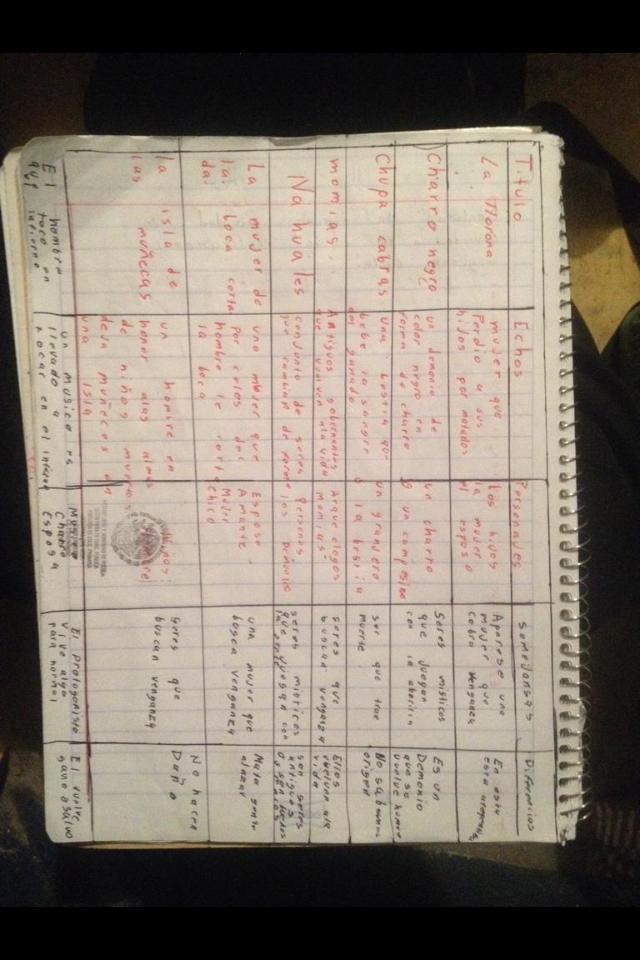 Titulo
Echos
Personajes
Semejansas
Diferencias
La llorona
mujer que
perdio a sus
hijos por matados
Los hijos
la mujer
el esposo
Aparese una
mujer que
cobra venganza
En esta
esta
Charro negro
un demonio de
color negro en
forma de charro
un charro
y un campesino
Seres misticos
que juegan
con la
Es un
Demonio
que se
vuelve hombre
Chupa cabras
una bestia que
bebe la sangre
del ganado
un granjero
y la bestia
ser que trae
muerte.
No sabemos
origen
momias.
Antiguos gobernantes
que vuelven ala vida
Arqueologos
momias
seres que
buscan venganza
Ellos
vuelven ala
vida
Nahuales
conjunto de seres
que cambian de forma
Personas
los Demonios
seres misticos
que juegan con
la gente
son seres
antiguos
La mujer de
la boca corta
da.
una mujer que
por celos del
hombre le corto
la boca
Esposo
Amante
Mujer
chico
una mujer que
busca venganza
Mata gente
al azar
la isla de
las muñecas
un hombre en
honor alas almas
de niños muertos
deja muñecas en
una isla
Niños
hombre
Seres que
buscan venganza
No hacen
Daño
El hombre
que toco en
infierno
un musico es
llevado a
tocar en el infierno
Musico
Chabo
Esposa
El protagonista
vive algo
para normal
El vuelve
sano a salvo